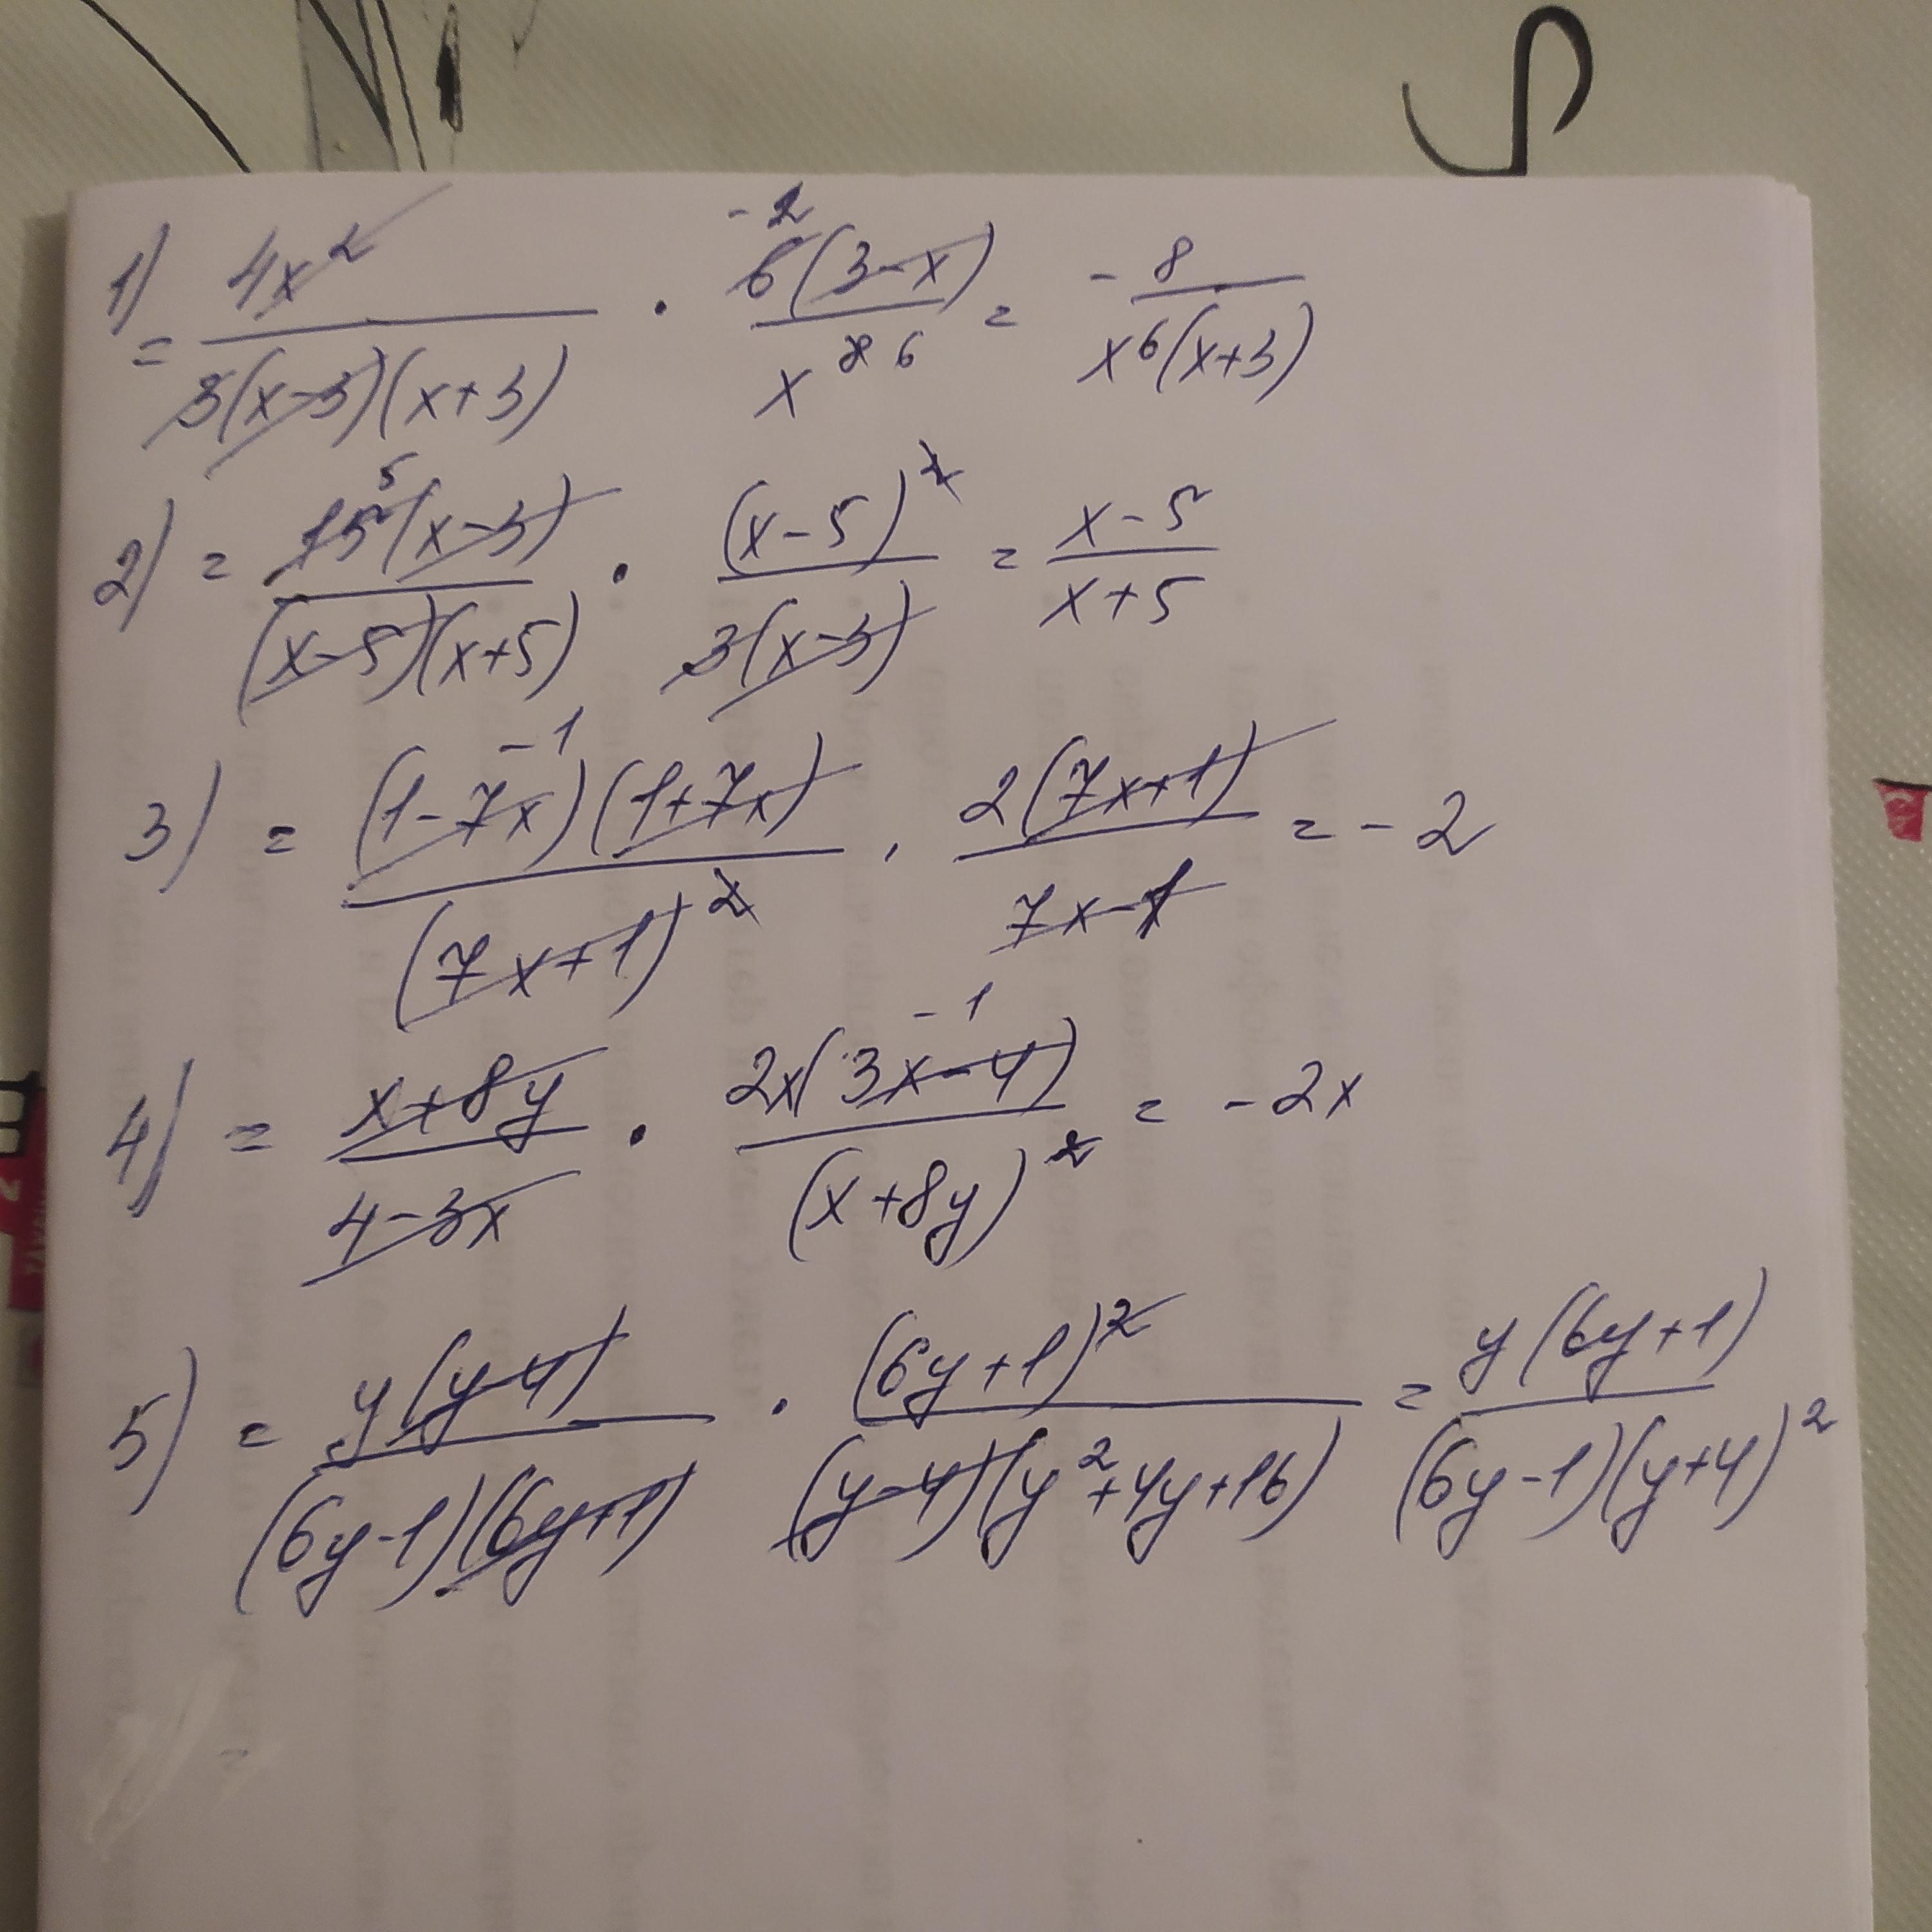 1) = 4x² / 3(x-3)(x+3) · -2 6(3-x) / x⁸ ⁶ = - 8 / x⁶(x+3)
2) = 15 5 (x-3) / (x-5)(x+5) · (x-5)² / 3(x-3) = x-5 / x+5
3) = (1-7x) -1 (1+7x) / (7x+1)² · 2(7x+1) / 7x-1 = -2
4) = x+8y / 4-3x · 2x(3x-4) -1 / (x+8y)² = -2x
5) = y(y-4) / (6y-1)(6y+1) · (6y+1)² / (y-4)(y²+4y+16) = y(6y+1) / (6y-1)(y+4)²